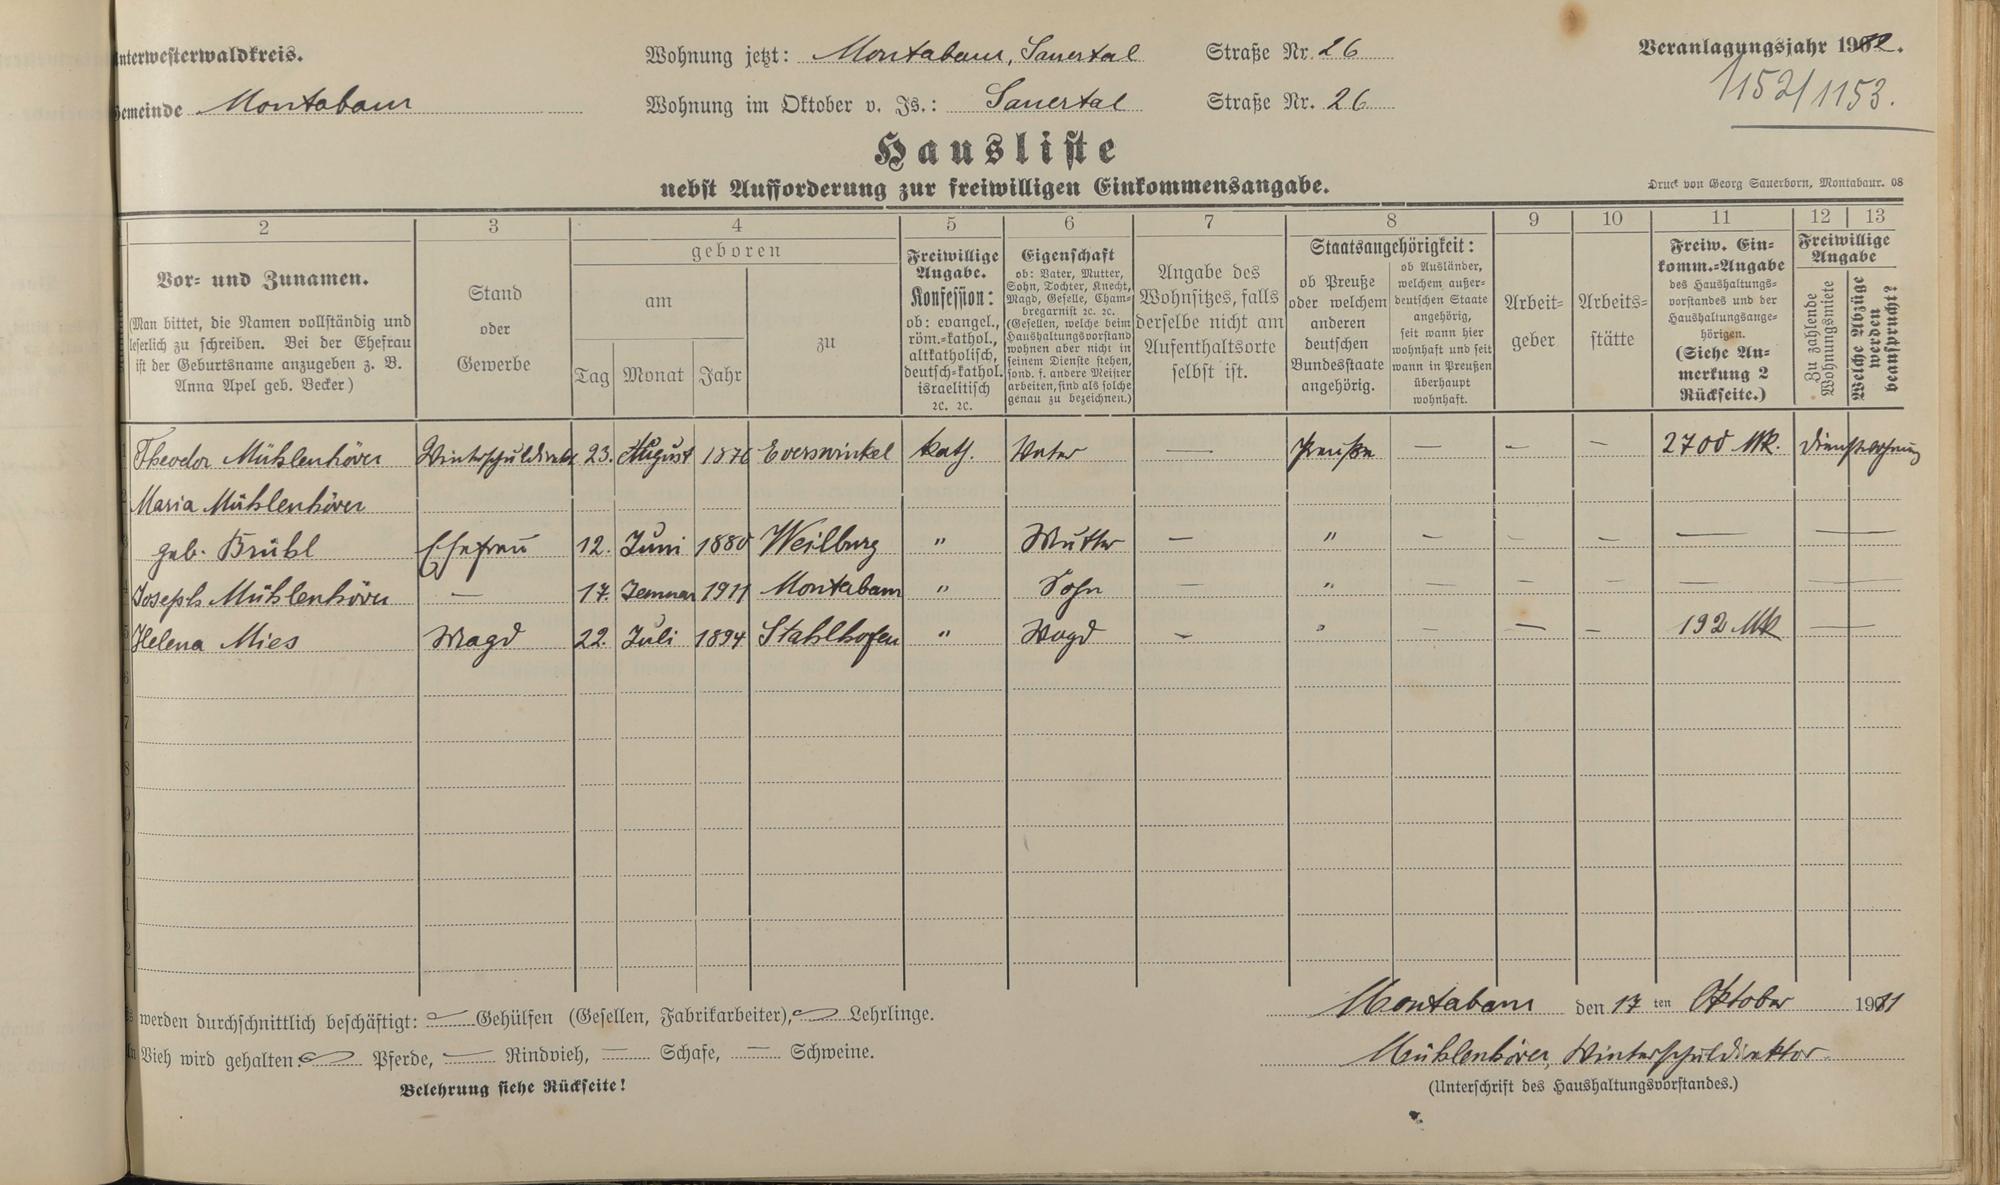 Unterwesterwaldkreis.
Wohnung jetzt: Montabaur, Sauertal Straße Nr. 26
Veranlagungsjahr 1912.
Gemeinde Montabaur
Wohnung im Oktober v. Js.: Sauertal Straße Nr. 26
1152/1153.
Hausliste
nebst Aufforderung zur freiwilligen Einkommensangabe.
Druck von Georg Sauerborn, Montabaur. 08
2 3 4 5 6 7 8 9 10 11 12 13
Vor- und Zunamen.
(Man bittet, die Namen vollständig und
leserlich zu schreiben. Bei der Ehefrau
ist der Geburtsname anzugeben z. B.
Anna Apel geb. Becker.)
Stand
oder
Gewerbe
geboren
am
Tag Monat Jahr
zu
Freiwillige
Angabe.
Konfession:
ob: evangel.,
röm.-kathol.,
altkatholisch,
deutsch-kathol.
israelitisch
2c. 2c.
Eigenschaft
ob: Vater, Mutter,
Sohn, Tochter, Knecht,
Magd, Geselle, Cham-
bregarnist 2c. 2c.
(Gesellen, welche beim
Haushaltungsvorstand
wohnen aber nicht in
seinem Dienste stehen,
sond. f. andere Meister
arbeiten, sind als solche
genau zu bezeichnen.)
Angabe des
Wohnsitzes, falls
derselbe nicht am
Aufenthaltsorte
selbst ist.
Staatsangehörigkeit:
ob Preuße
oder welchem
anderen
deutschen
Bundesstaate
angehörig.
ob Ausländer,
welchem außer-
deutschen Staate
angehörig,
seit wann hier
wohnhaft und seit
wann in Preußen
überhaupt
wohnhaft.
Arbeit-
geber
Arbeits-
stätte
Freiw. Ein-
komm.-Angabe
des Haushaltungs-
vorstandes und der
Haushaltungsange-
hörigen.
(Siehe An-
merkung 2
Rückseite.)
Freiwillige
Angabe
Zu zahlende
Wohnungsmiete
Welche Abzüge
werden
beansprucht?
1 Theodor Mühlenhöver Winterschuldirektor 23. August 1876 Everswinkel kath. Vater — Preuße — — — 2700 Mk. Dienstwohnung
2 Maria Mühlenhöver
3 geb. Brühl Ehefrau 12. Juni 1880 Weilburg " Mutter — " — — — — —
4 Joseph Mühlenhöver — 17. Januar 1911 Montabaur " Sohn — " — — — — —
5 Helena Mies Magd 22. Juli 1894 Stahlhofen " Magd — " — — — 192 Mk —
6
7
8
9
0
1
2
Montabaur den 17ten Oktober 1911
Es werden durchschnittlich beschäftigt: — Gehülfen (Gesellen, Fabrikarbeiter), — Lehrlinge.
An Vieh wird gehalten: — Pferde, — Rindvieh, — Schafe, — Schweine.
Mühlenhöver, Winterschuldirektor.
Belehrung siehe Rückseite!
(Unterschrift des Haushaltungsvorstandes.)